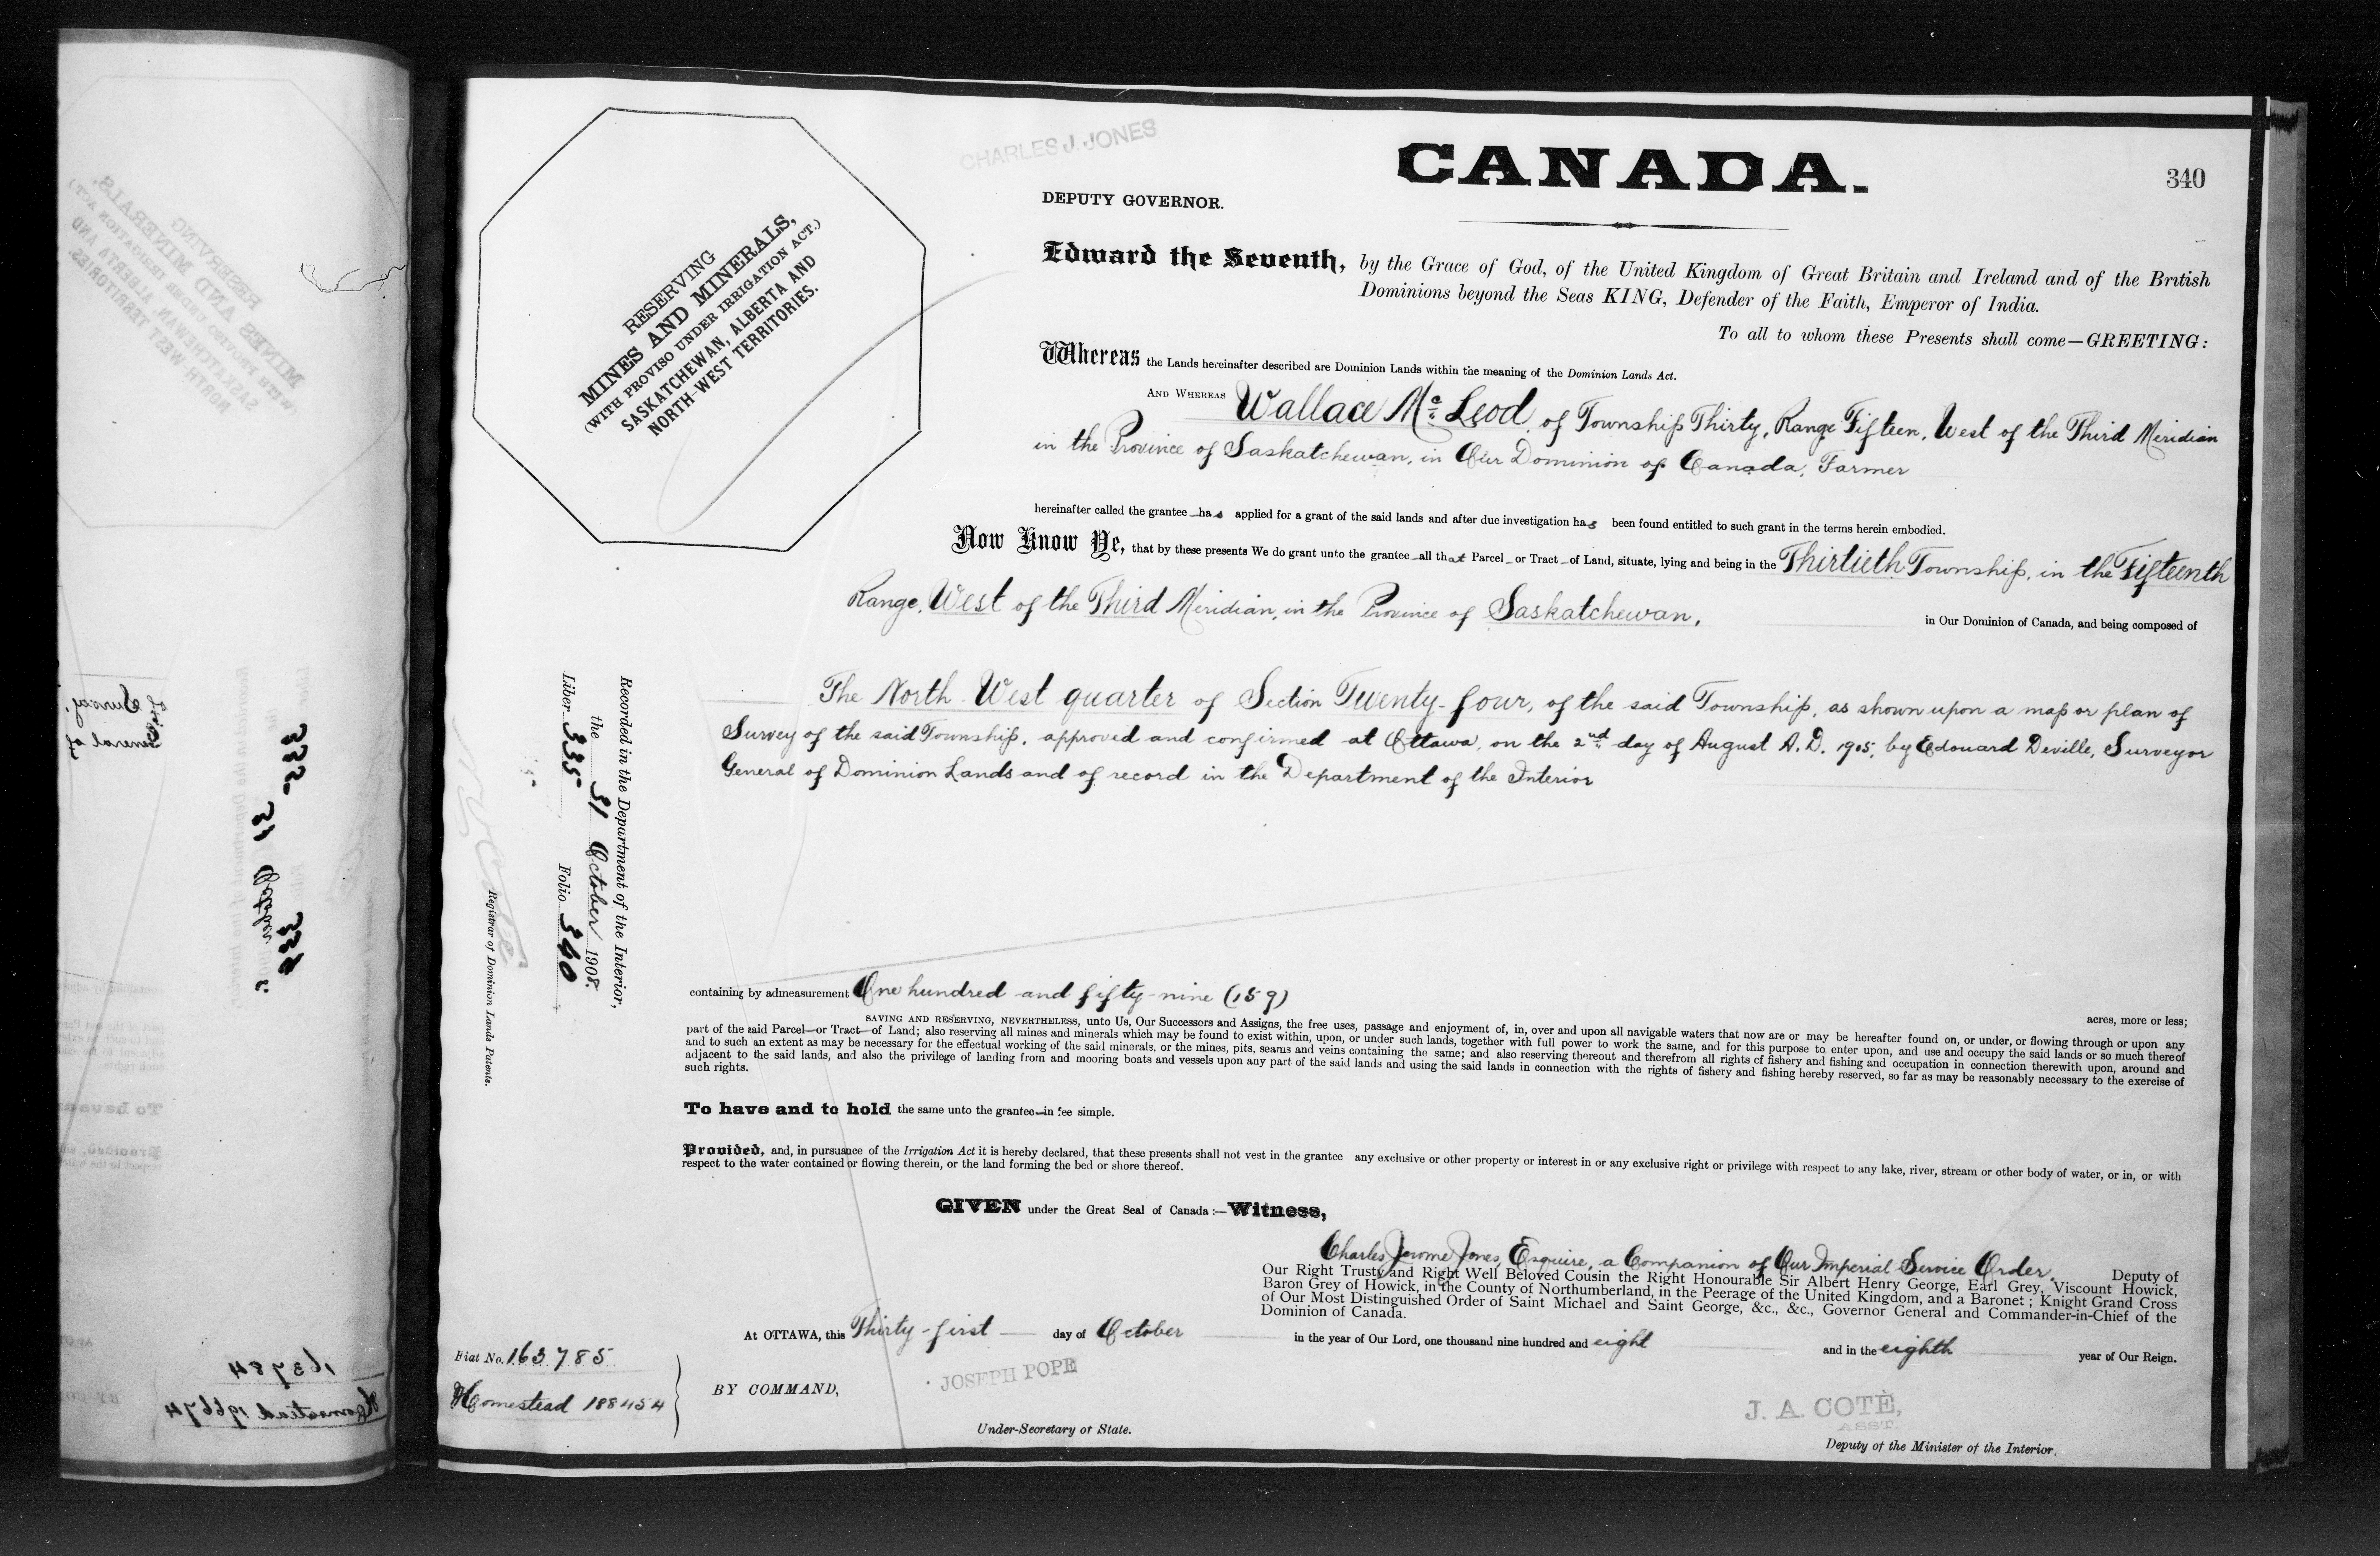 CHARLES J. JONES
CANADA.
340
DEPUTY GOVERNOR.
RESERVING
MINES AND MINERALS,
(WITH PROVISO UNDER IRRIGATION ACT.)
SASKATCHEWAN, ALBERTA AND
NORTH-WEST TERRITORIES.
Edward the Seventh, by the Grace of God, of the United Kingdom of Great Britain and Ireland and of the British
Dominions beyond the Seas KING, Defender of the Faith, Emperor of India.
To all to whom these Presents shall come—GREETING:
Whereas the Lands hereinafter described are Dominion Lands within the meaning of the Dominion Lands Act.
AND WHEREAS Wallace Mc Leod, of Township Thirty, Range Fifteen, West of the Third Meridian
in the Province of Saskatchewan, in Our Dominion of Canada, Farmer
hereinafter called the grantee has applied for a grant of the said lands and after due investigation has been found entitled to such grant in the terms herein embodied.
Now Know Ye, that by these presents We do grant unto the grantee all that Parcel or Tract of Land, situate, lying and being in the Thirtieth Township, in the Fifteenth
Range, West of the Third Meridian, in the Province of Saskatchewan, in Our Dominion of Canada, and being composed of
The North West quarter of Section Twenty-four, of the said Township, as shown upon a map or plan of
Survey of the said Township, approved and confirmed at Ottawa, on the 2nd day of August A.D. 1905, by Edouard Deville, Surveyor
General of Dominion Lands and of record in the Department of the Interior
Recorded in the Department of the Interior,
the 31 October 1908.
Liber 335 Folio 340
Registrar of Dominion Lands Patents.
containing by admeasurement One hundred and fifty-nine (159)
acres, more or less;
SAVING AND RESERVING, NEVERTHELESS, unto Us, Our Successors and Assigns, the free uses, passage and enjoyment of, in, over and upon all navigable waters that now are or may be hereafter found on, or under, or flowing through or upon any
part of the said Parcel—or Tract—of Land; also reserving all mines and minerals which may be found to exist within, upon, or under such lands, together with full power to work the same, and for this purpose to enter upon, and use and occupy the said lands or so much thereof
and to such an extent as may be necessary for the effectual working of the said minerals, or the mines, pits, seams and veins containing the same; and also reserving thereout and therefrom all rights of fishery and fishing and occupation in connection therewith upon, around and
adjacent to the said lands, and also the privilege of landing from and mooring boats and vessels upon any part of the said lands and using the said lands in connection with the rights of fishery and fishing hereby reserved, so far as may be reasonably necessary to the exercise of
such rights.
To have and to hold the same unto the grantee—in fee simple.
Provided, and, in pursuance of the Irrigation Act it is hereby declared, that these presents shall not vest in the grantee any exclusive or other property or interest in or any exclusive right or privilege with respect to any lake, river, stream or other body of water, or in, or with
respect to the water contained or flowing therein, or the land forming the bed or shore thereof.
GIVEN under the Great Seal of Canada:—Witness,
Charles Jerome Jones, Esquire, a Companion of Our Imperial Service Order, Deputy of
Our Right Trusty and Right Well Beloved Cousin the Right Honourable Sir Albert Henry George, Earl Grey, Viscount Howick,
Baron Grey of Howick, in the County of Northumberland, in the Peerage of the United Kingdom, and a Baronet; Knight Grand Cross
of Our Most Distinguished Order of Saint Michael and Saint George, &c., &c., Governor General and Commander-in-Chief of the
Dominion of Canada.
At OTTAWA, this Thirty-first day of October in the year of Our Lord, one thousand nine hundred and eight and in the eighth year of Our Reign.
Fiat No. 163785
Homestead 188454
BY COMMAND,
JOSEPH POPE
Under-Secretary of State.
J. A. COTÉ,
ASST.
Deputy of the Minister of the Interior.